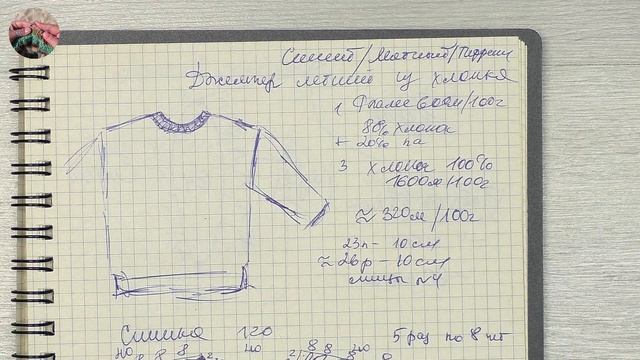 Синий/Мятный/Тиффани
Джемпер летний из хлопка
1 600м/100г
80% хлопок
+ 20% па
3 хлопок 100%
1600м/100г
≈ 320м/100г
23п - 10см
≈ 26р - 10см
спицы №4
Спинка 120
5 раз по 8 пт
40 8 8 8 2 40 2) 8 8 20